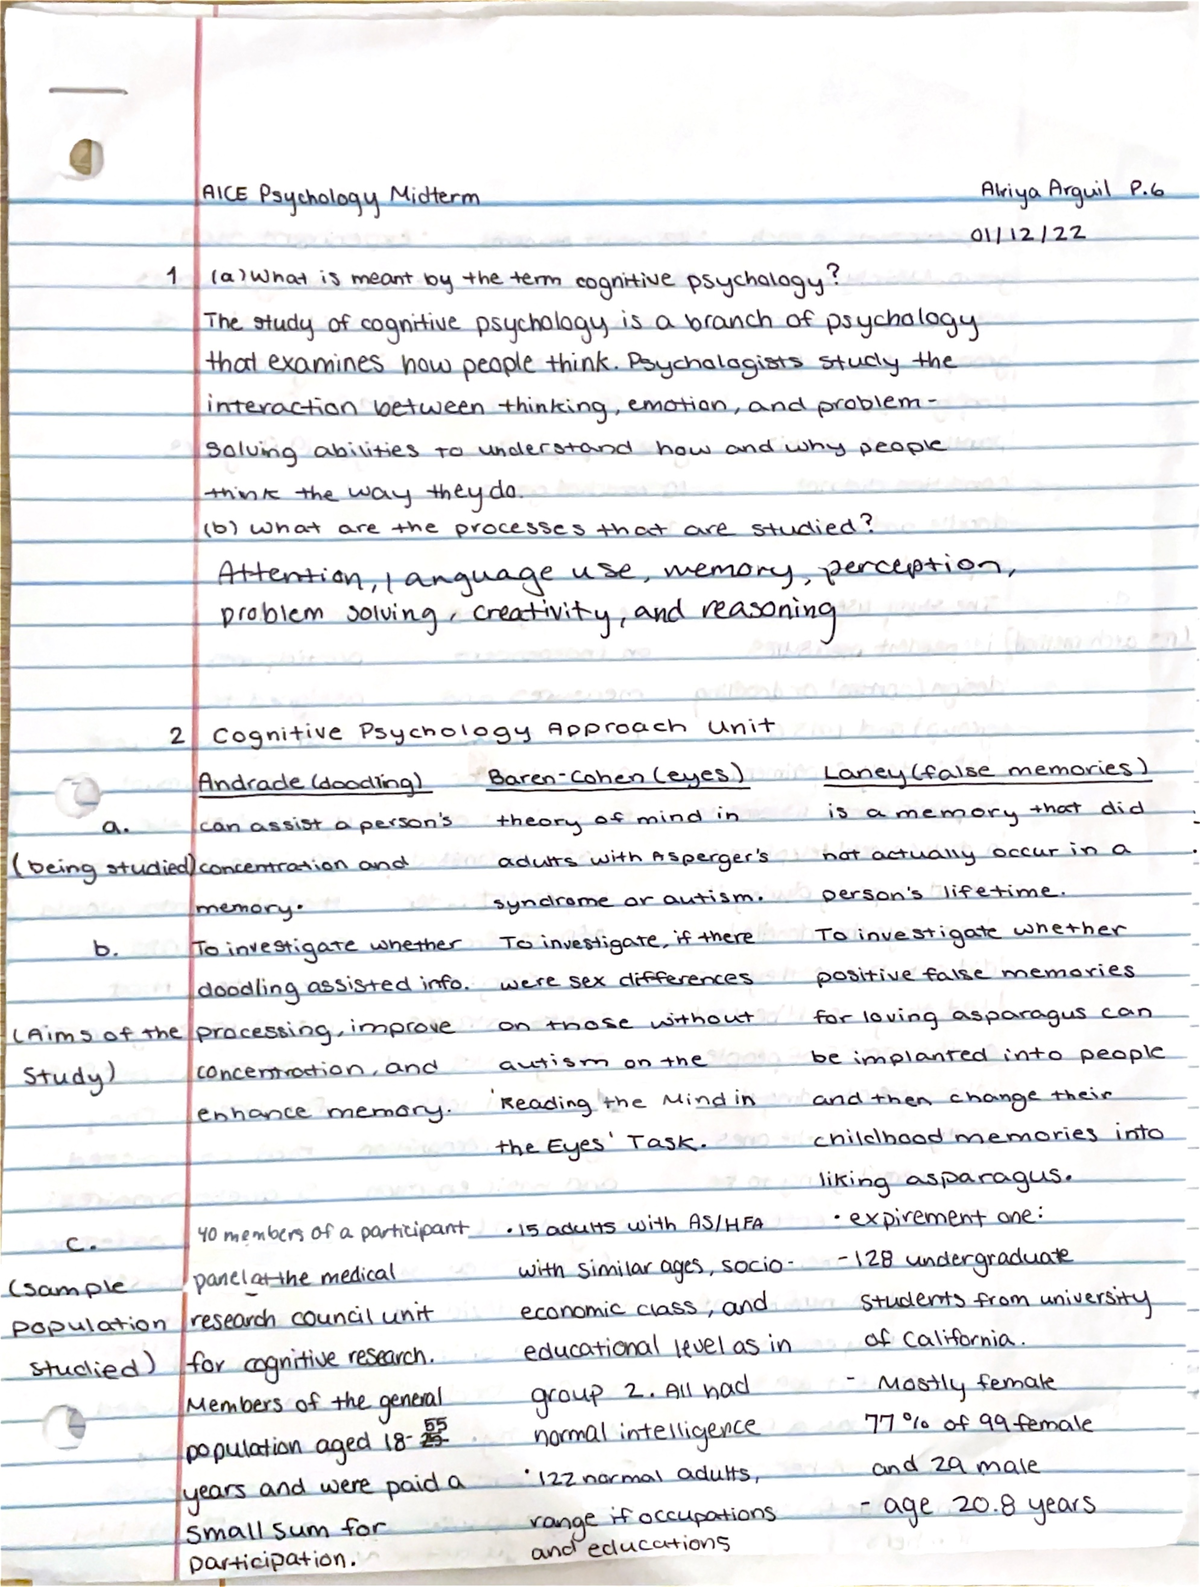 AICE Psychology Midterm
Alriya Arguil P.6
01/12/22
1 (a) What is meant by the term cognitive psychology?
The study of cognitive psychology is a branch of psychology
that examines how people think. Psychologists study the
interaction between thinking, emotion, and problem-
solving abilities to understand how and why people
think the way they do.
(b) What are the processes that are studied?
Attention, language use, memory, perception,
problem solving, creativity, and reasoning
2 Cognitive Psychology Approach Unit
Andrade (doodling)
a.
(being studied)
can assist a person's
concentration and
memory.
b.
(Aims of the
Study)
To investigate whether
doodling assisted info.
processing, improve
concentration, and
enhance memory.
c.
(sample
population
studied)
40 members of a participant
panel at the medical
research council unit
for cognitive research.
Members of the general
population aged 18-55
years and were paid a
small sum for
participation.
Baren-Cohen (eyes)
theory of mind in
adults with Asperger's
syndrome or autism.
To investigate, if there
were sex differences
on those without
autism on the
'Reading the Mind in
the Eyes' Task.
• 15 adults with AS/HFA
with similar ages, socio-
economic class, and
educational level as in
group 2. All had
normal intelligence
• 122 normal adults,
range if occupations
and educations
Laney (false memories)
is a memory that did
not actually occur in a
person's lifetime.
To investigate whether
positive false memories
for loving asparagus can
be implanted into people
and then change their
childhood memories into
liking asparagus.
• expirement one:
- 128 undergraduate
students from university
of California.
- Mostly female
77% of 99 female
and 29 male
- age 20.8 years